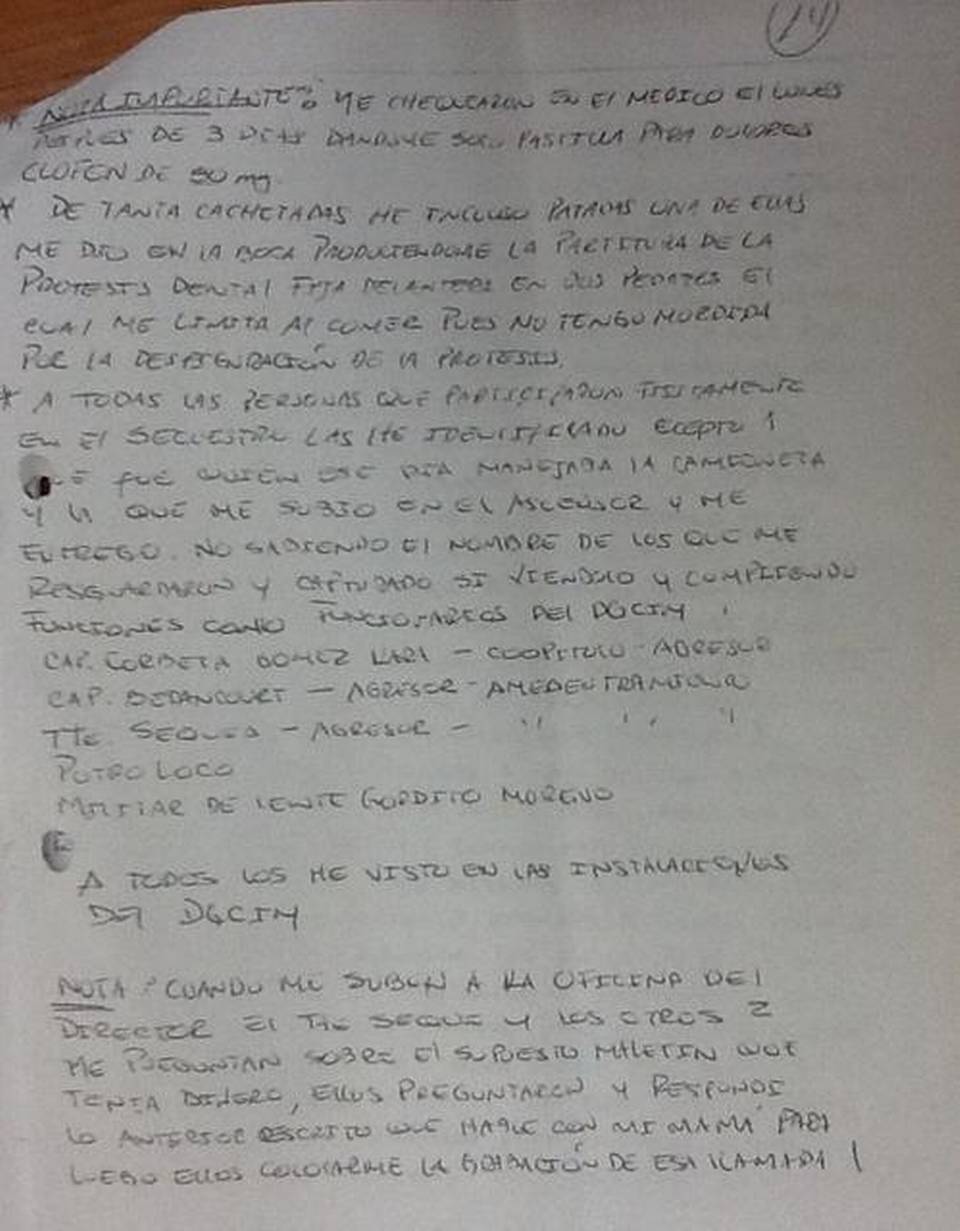 14
NOTA IMPORTANTE: ME CHEQUEARON EN El MEDICO El LUNES
DE 3 DIAS DANDOME SOLO PASTILLA PARA DOLORES
CLOFEN DE 50 mg.
* DE TANTA CACHETADAS HE INCLUSO PATADAS UNA DE ELLAS
ME DIO EN lA BOCA PRODUCIENDOME LA PARTITURA DE LA
PROTESIS DENTAl FIJA DELANTERA EN DOS PEDAZOS El
CUAl ME LIMITA Al COMER PUES NO TENGO MORDIDA
POR lA DESFIGURACIÓN DE lA PROTESIS.
* A TODAS LAS PERSONAS QUE PARTICIPARON FISICAMENTE
EN El SECUESTRO LAS HE IDENTIFICADO ECEPTO 1
QUE FUE QUIEN ESE DIA MANEJABA lA CAMIONETA
Y lA QUE ME SUBIO EN El ASCENSOR Y ME
ENTREGO. NO SABIENDO El NOMBRE DE lOS QUE ME
RESGUARDARON Y CAPTURADO SI VIENDOLO Y CUMPLIENDO
FUNCIONES COMO FUNCIONARIOS DEl DGCIM
CAP. CORBETA GOMEZ LARI - COOPITULO - AGRESOR
CAP. BETANCOURT - AGRESOR - AMEDENTRAMIENTO
TTE. SEQUEA - AGRESOR - " " "
POTRO LOCO
MILITAR DE lENTE GORDITO MORENO
A TODOS LOS HE VISTO EN LAS INSTALACIONES
DEl DGCIM
NOTA: CUANDO ME SUBEN A LA OFICINA DEl
DIRECTOR El TTE SEQUE Y LOS OTROS 2
ME PREGUNTAN SOBRE El SUPUESTO MALETIN QUE
TENIA DINERO, ELLOS PREGUNTARON Y RESPONDI
LO ANTERIOR ESCRITO QUE HABLE CON MI MAMÁ PARA
LUEGO ELLOS COLOCARME LA GRABACIÓN DE ESA llAMADA